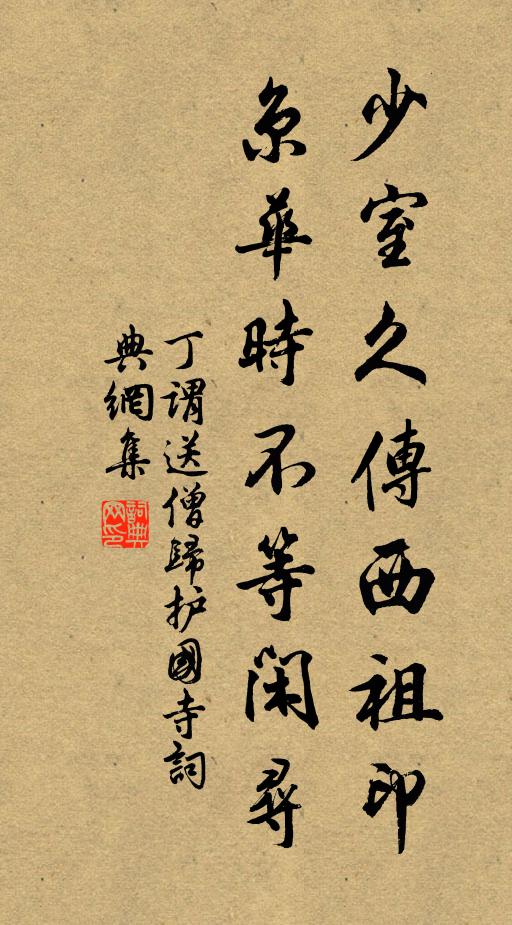 少室久傳西祖印
京華時不等閑尋
丁謂送僧歸护國寺詞
典網集
詞典網印